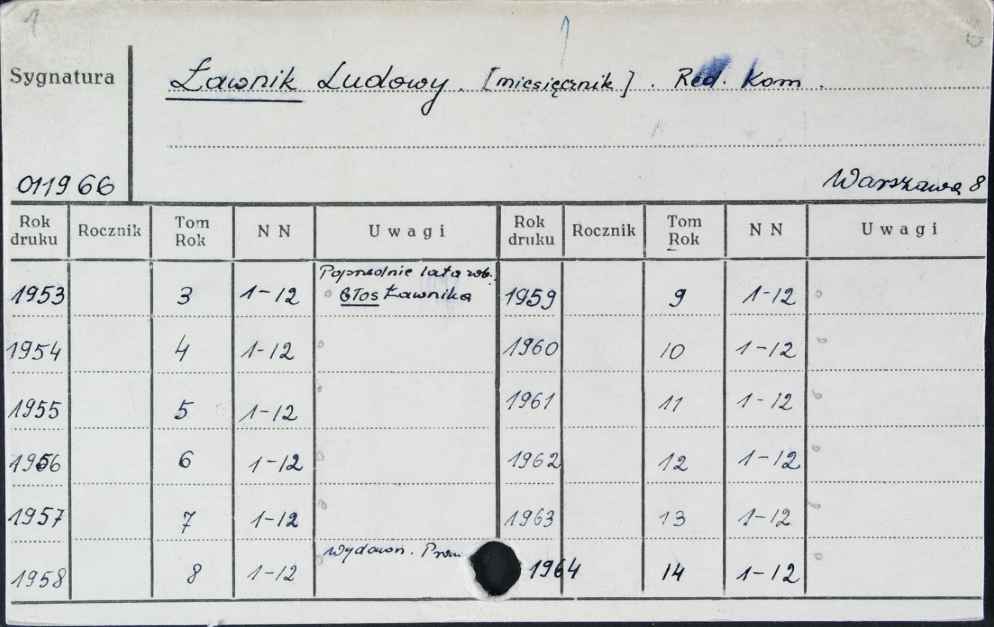 1
Sygnatura
Ławnik Ludowy. [miesięcznik]. Red. Kom.
011966
Warszawa 8
Rok druku Rocznik Tom Rok NN Uwagi Rok druku Rocznik Tom Rok NN Uwagi
Poprzednie lata zob.
1953 3 1-12 Głos Ławnika 1959 9 1-12
1954 4 1-12 1960 10 1-12
1955 5 1-12 1961 11 1-12
1956 6 1-12 1962 12 1-12
1957 7 1-12 1963 13 1-12
Wydawn. Prawn
1958 8 1-12 1964 14 1-12